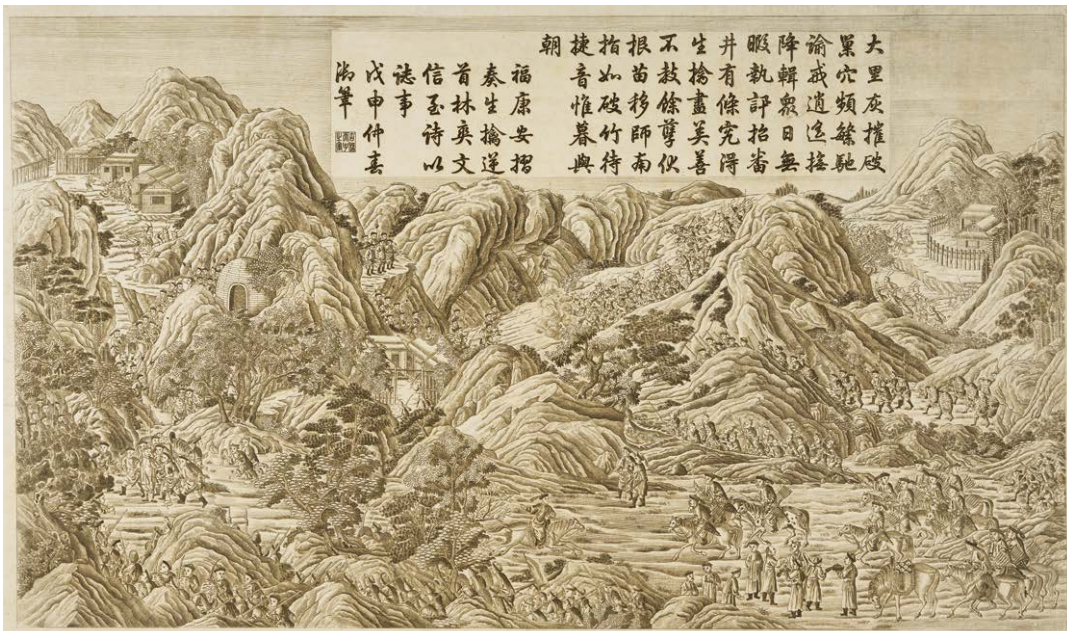 大里灰摧破
巢穴頻繁馳
諭戒逍遙接
降輯眾日無
暇執訊招番
井有條究得
生擒盡美善
不教餘孽伏
根苗移師南
指如破竹待
捷音惟暮與
朝
福康安摺
奏生擒逆
首林爽文
信至詩以
誌事
戊申仲春
御筆